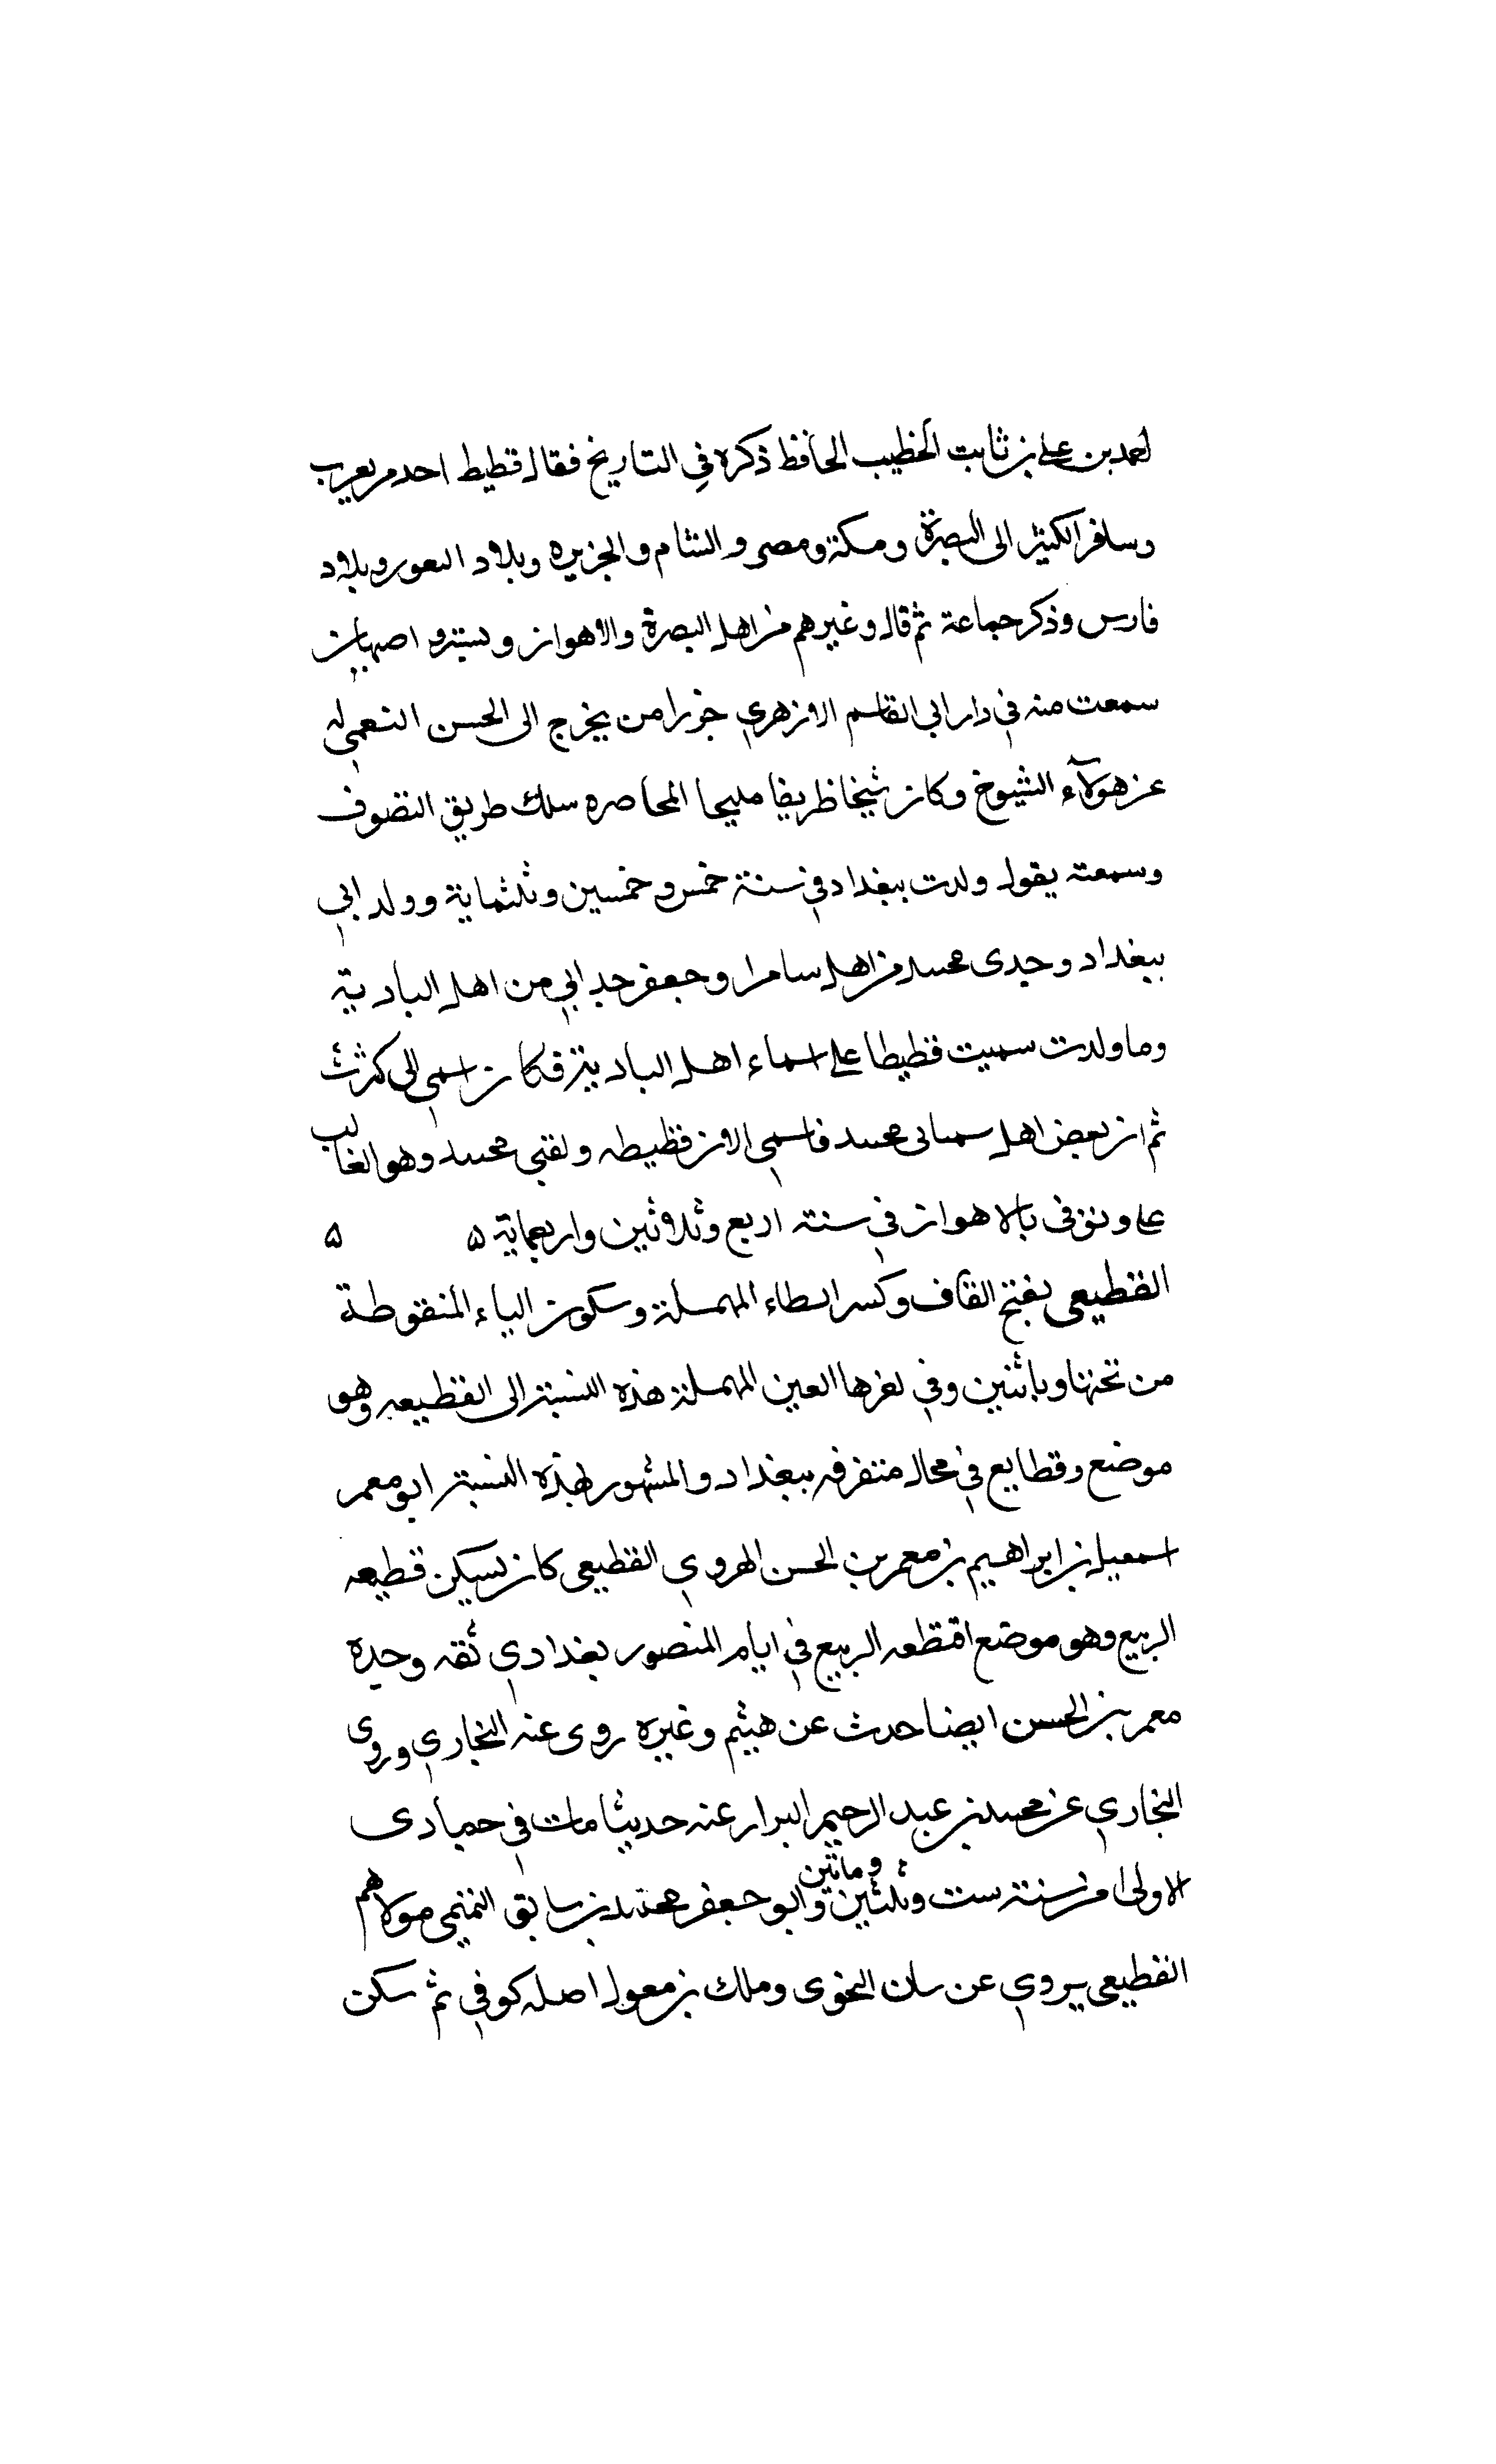 احمد بن علي بن ثابت الخطيب الحافظ ذكره في التاريخ فقال قطيط احد من يعرب
وسافر الكثير الى البصرة ومكة ومصر والشام والجزيره وبلاد الثغور وبلاد
فارس وذكر جماعة ثم قال وغيرهم من اهل البصرة والاهواز وتستر و اصبهان
سمعت منه في دار ابي القاسم الازهري جزرا من يخرج الى الحسن النعمى له
عن هولآء الشيوخ وكان شيخا ظريفا مليحا المحاصره سلك طريق التصوف
وسمعته يقول ولدت ببغداد في سنة خمس وخمسين وثلثماية وولد ابي
ببغداد وجدى محمد من اهل سامرا وجعفر جد ابي من اهل البادية
وما ولدت سميت قطيطا على اسماء اهل البادية فكان اسمى الى كثرت
ثم ان بعض اهل سمانى محمد فاسمى الان قطيطه ولقبى محمد وهو الغالب
على وتوفى بالاهواز في سنة اربع وثلاثين واربعماية ۵ ۵
القطيعى بفتح القاف وكسر الطاء المهملة وسكون الياء المنقوطة
من تحتها وباثنين وفي اخرها العين المهملة هذه النسبة الى القطيعه وهو
موضع وقطايع في محال متفرقه ببغداد والمشهور بهذه النسبة ابو معمر
اسمعيل بن ابراهيم بن معمر بن الحسن الهروي القطيعى كان يسكن قطيعه
الربيع وهو موضع اقتطعه الربيع في ايام المنصور بغدادي ثقه وجده
معمر بن الحسن ايضا حدث عن هيثم وغيره روى عنه البخاري وروى
البخاري عن محمد بن عبد الرحيم البزار عنه حديثا مات في جمادى
الاولى من سنة ست وثلثين وماتين وابو جعفر محمد بن سابق التميمى مولاهم
القطيعى يروي عن سان النحوى وملك بن معول اصله كوفي ثم سكن